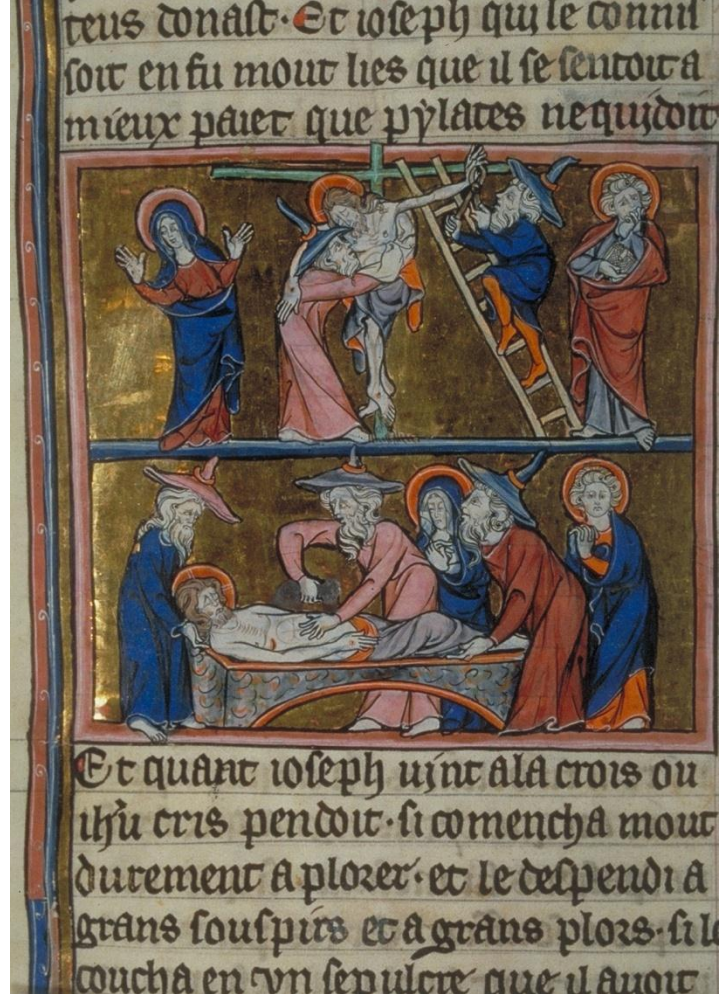 teus donast· Et ioseph qui le connis
soit en fu mout lies que il se sentoit a
mieux paiet que pylates ne quidoit
Et quant ioseph uint a la crois ou
ihu cris pendoit· si comencha mout
durement a plorer· et le despendi a
grans souspirs et a grans plors· si le
coucha en vn sepulcre que il auoit